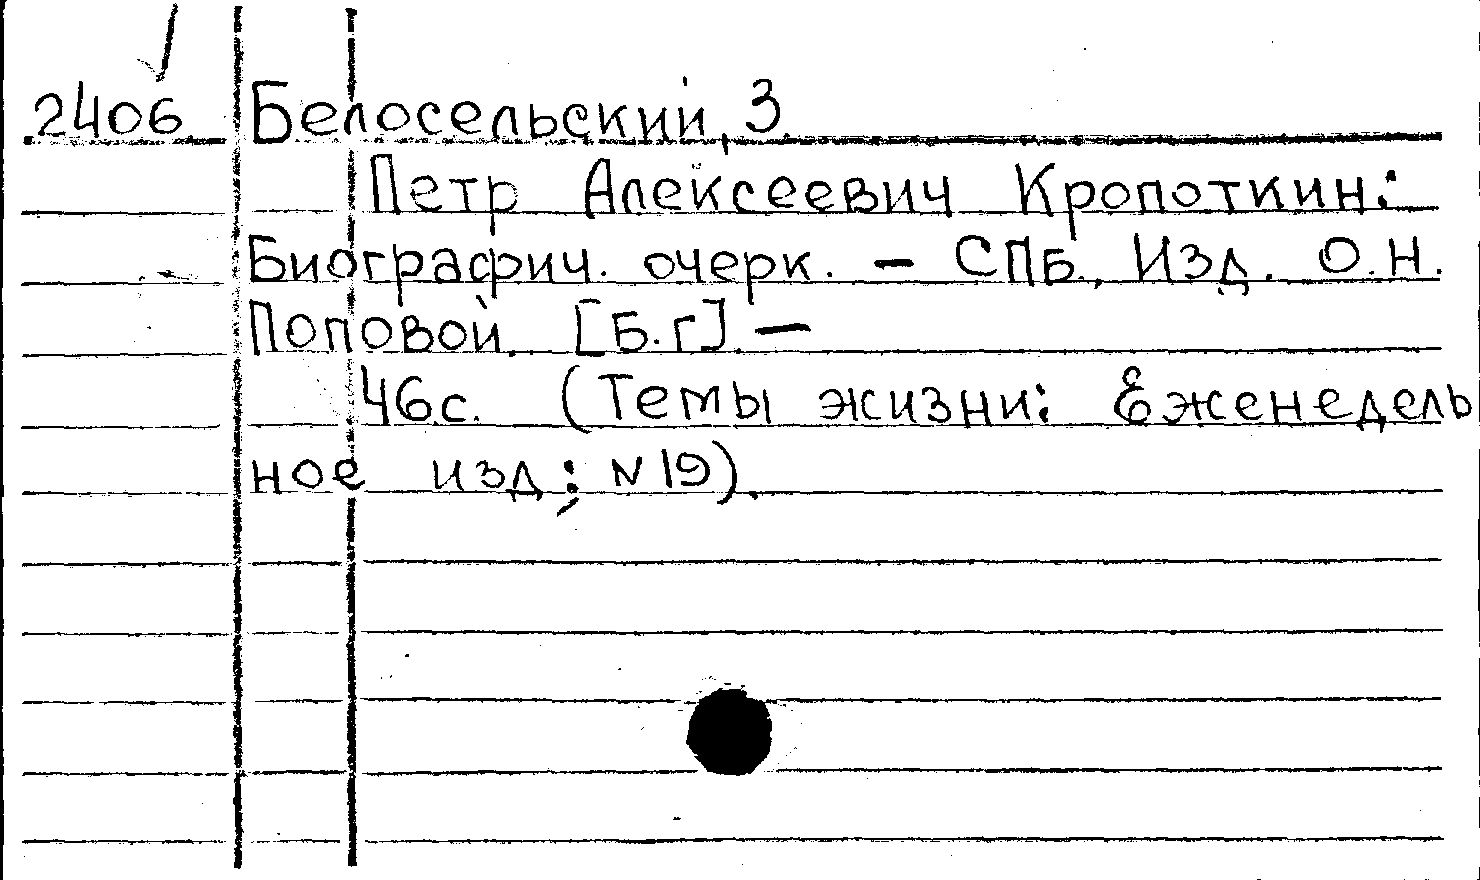 2406 Белосельский, З.
Петр Алексеевич Кропоткин:
Биографич. очерк. – СПБ., Изд. О.Н.
Поповой [Б.г] –
46с. (Темы жизни: Еженедель
ное изд.; N19).